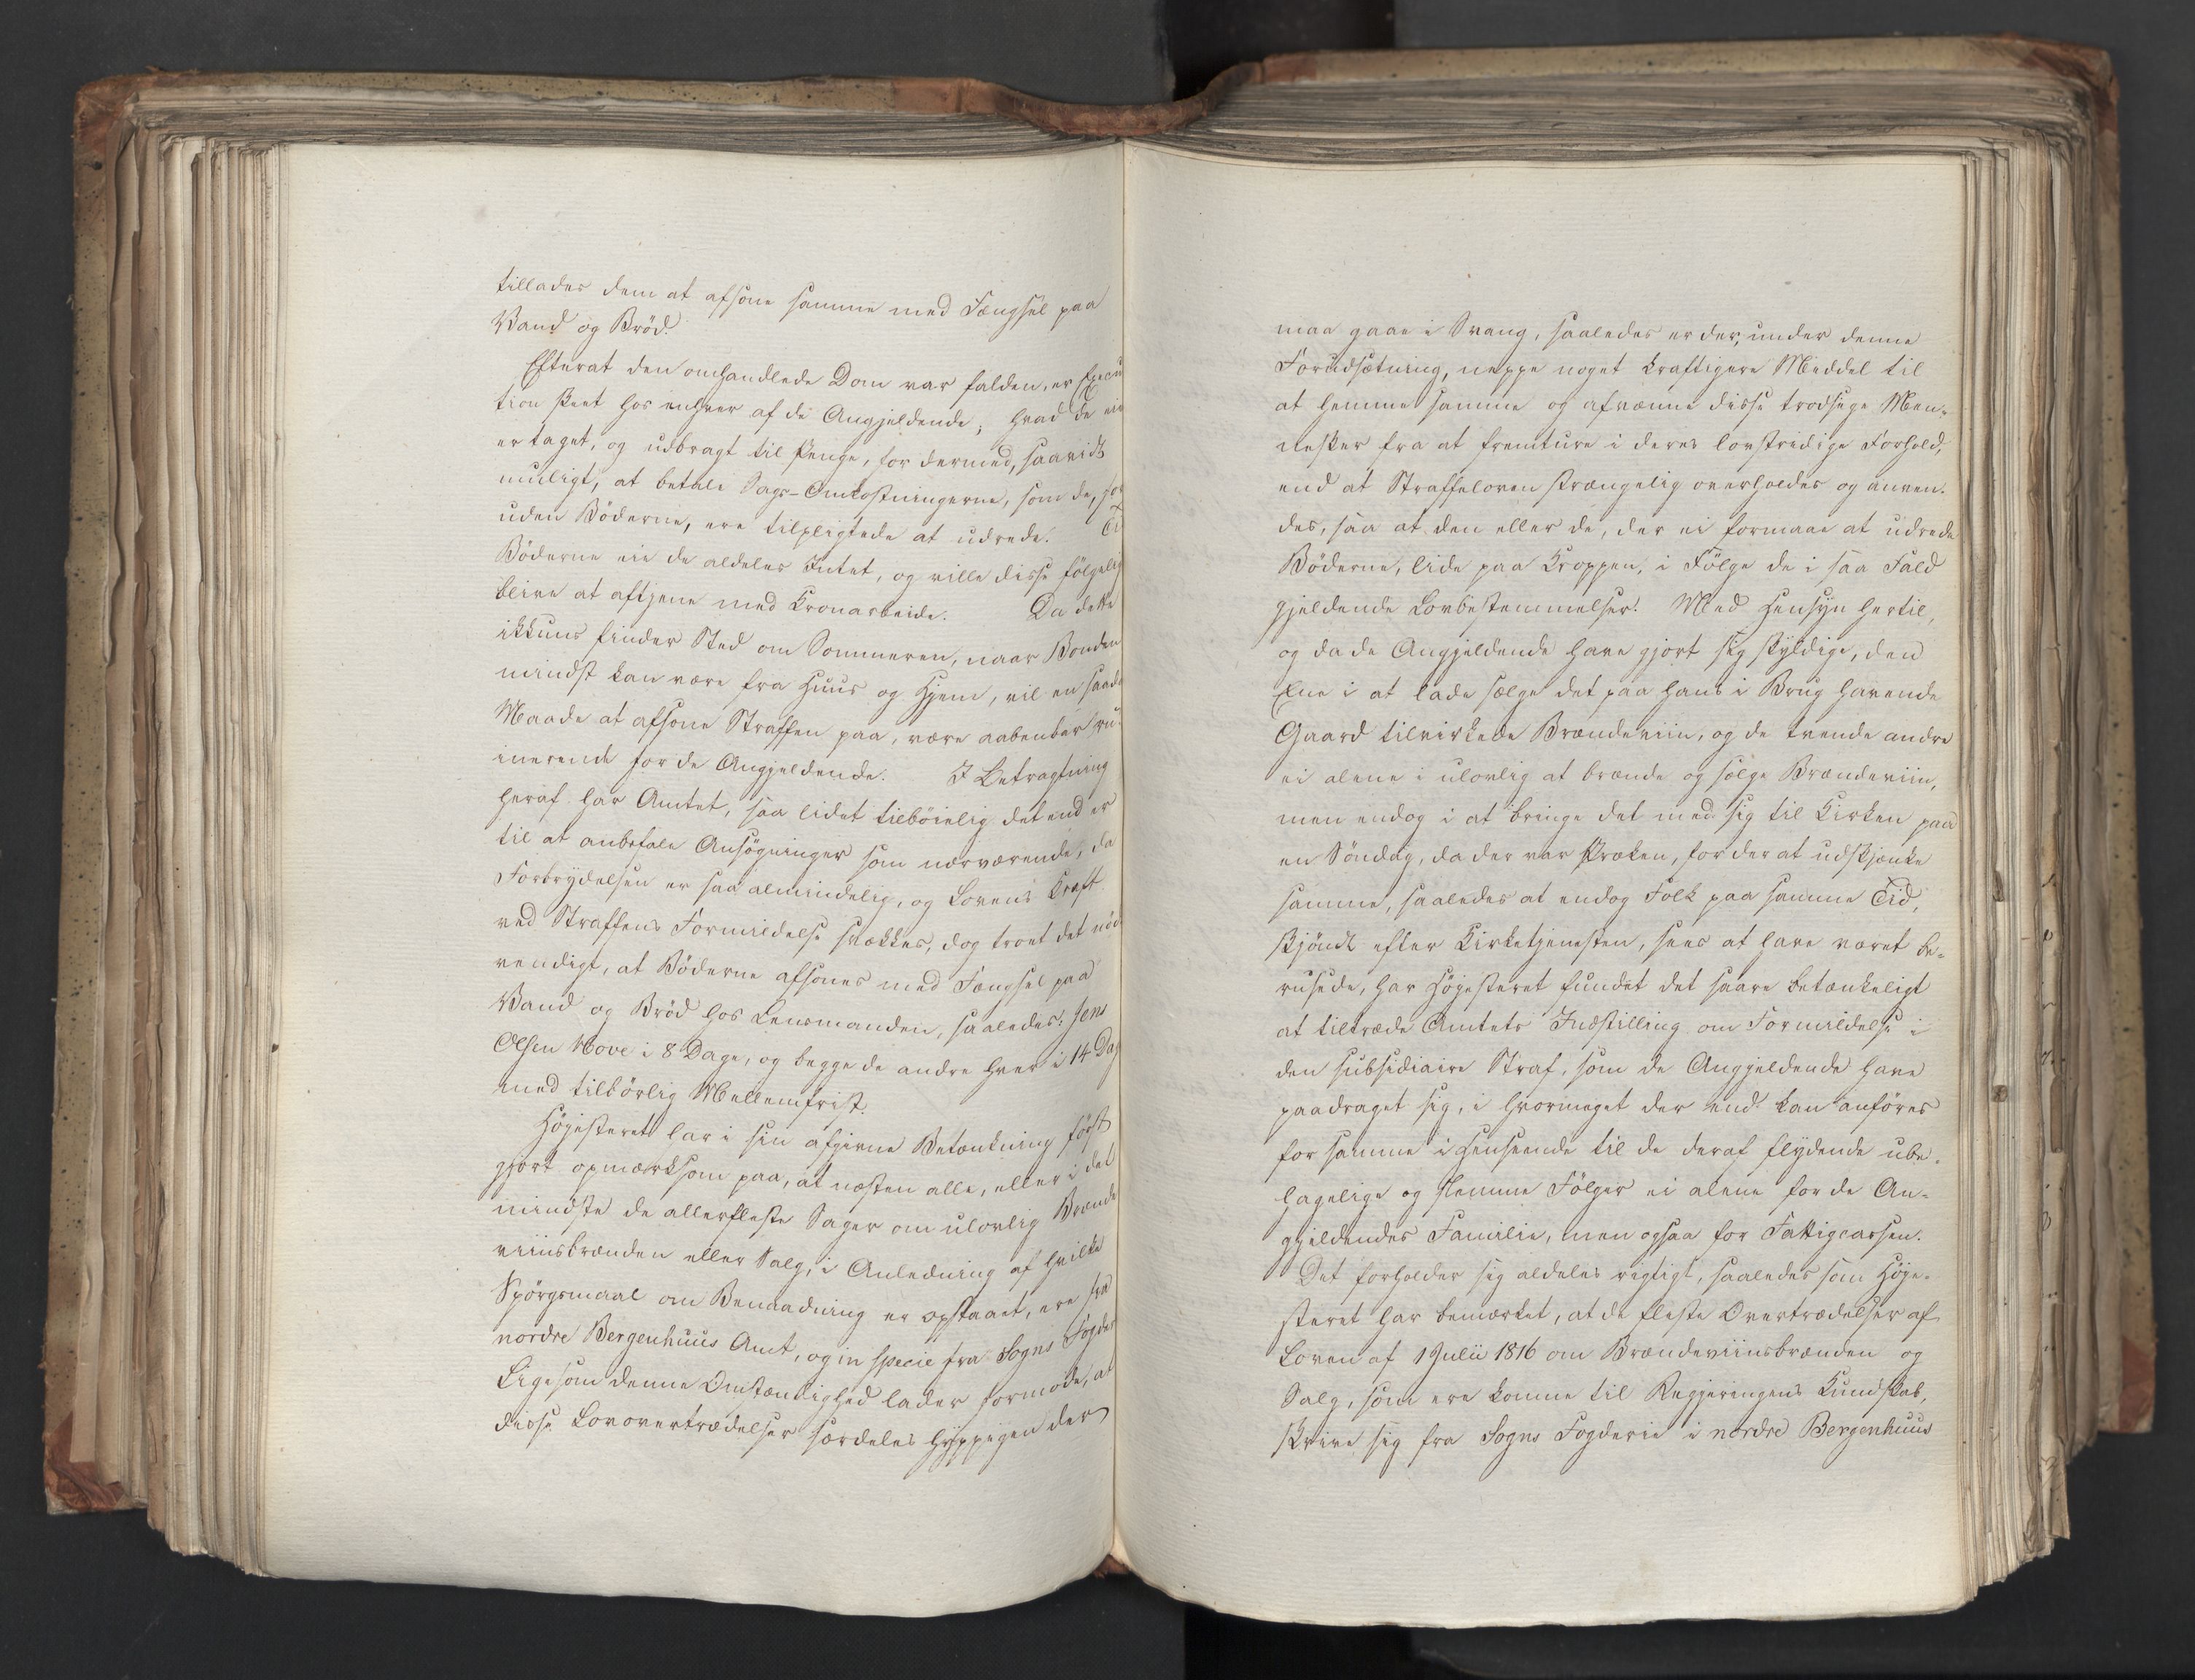 tillades dem at afsone samme med Fængsel paa
Vand og Bröd.
Efterat den omhandlede Dom var falden, er Execu
tion skeet hos enhver af de Angjeldende; hvad de eie
er taget, og udbragt til Penge, for dermed, saavidt
muligt, at betale Sags-Omkostningerne, som de, for
uden Böderne, ere tilpligtede at udrede. Til
Böderne eie de aldeles Intet, og ville disse fölgelig
blive at aftjene med Kronarbeide. Da dette
ikkuns finder Sted om Sommeren, naar Bonden
mindst kan være fra Huus og Hjem, vil en saada
Maade at afsone Straffen paa, være aabenbar ru-
inerende for de Angjeldende. I Betragtning
heraf har Amtet, saa lidet tilböielig det end er
til at anbefale Ansögninger som nærværende, da
Forbrydelsen er saa almindelig, og Lovens Kraft
ved Straffens Formildelse svækkes, dog troet det nöd
vendigt, at Böderne afsones med Fængsel paa
Vand og Bröd hos Lensmanden, saaledes: Jens
Olsen Hove i 8 Dage, og begge de andre hver i 14 Dag
med tilbörlig Mellemfrist.
Höjesteret har i sin afgivne Betænkning först
gjort opmærksom paa, at næsten alle, eller i det
mindste de allerfleste Sager om ulovlig Brænde
viinsbrænden eller Salg, i Anledning af hvilke
Spörgsmaal om Benaadning er opstaaet, ere fra
nordre Bergenhuus Amt, og in specie fra Sogns Fogder
Ligesom denne Omstændighed lader formode, at
disse Lovovertrædelser særdeles hyppigen der
maa gaae i Svang, saaledes er der, under denne
Forudsætning, neppe noget kraftigere Middel til
at hemme samme og afvænne disse trodsige Men-
nesker fra at fremture i deres lovstridige Forhold,
end at Straffeloven strængelig overholdes og anven-
des, saa at den eller de, der ei formaae at udrede
Böderne, lide paa Kroppen, i Fölge de i saa Fald
gjeldende Lovbestemmelser. Med Hensyn hertil,
og da de Angjeldende have gjort sig skyldige, den
Ene i at lade sælge det paa hans i Brug havende
Gaard tilvirkede Brændeviin, og de tvende andre
ei alene i ulovlig at brænde og sælge Brændeviin,
men endog i at bringe det med sig til Kirken paa
en Söndag, da der var Præken, for der at udskjænke
samme, saaledes at endog Folk paa samme Tid,
skjöndt efter Kirketjenesten, sees at have været be-
rusede, har Höjesteret fundet det saare betænkeligt
at tiltræde Amtets Indstilling om Formildelse i
den subsidiaire Straf, som de Angjeldende have
paadraget sig, i hvormeget der end kan anföres
for samme i Henseende til de deraf flydende ube-
hagelige og slemme Fölger ei alene for de An-
gjeldendes Familie, men ogsaa for Fattigcassen.
Det forholder sig aldeles rigtigt, saaledes som Höje-
steret har bemærket, at de fleste Overtrædelser af
Loven af 1 Julii 1816 om Brændeviinsbrænden og
Salg, som ere komne til Regjeringens Kundskab,
skrive sig fra Sogns Fogderie i nordre Bergenhuus